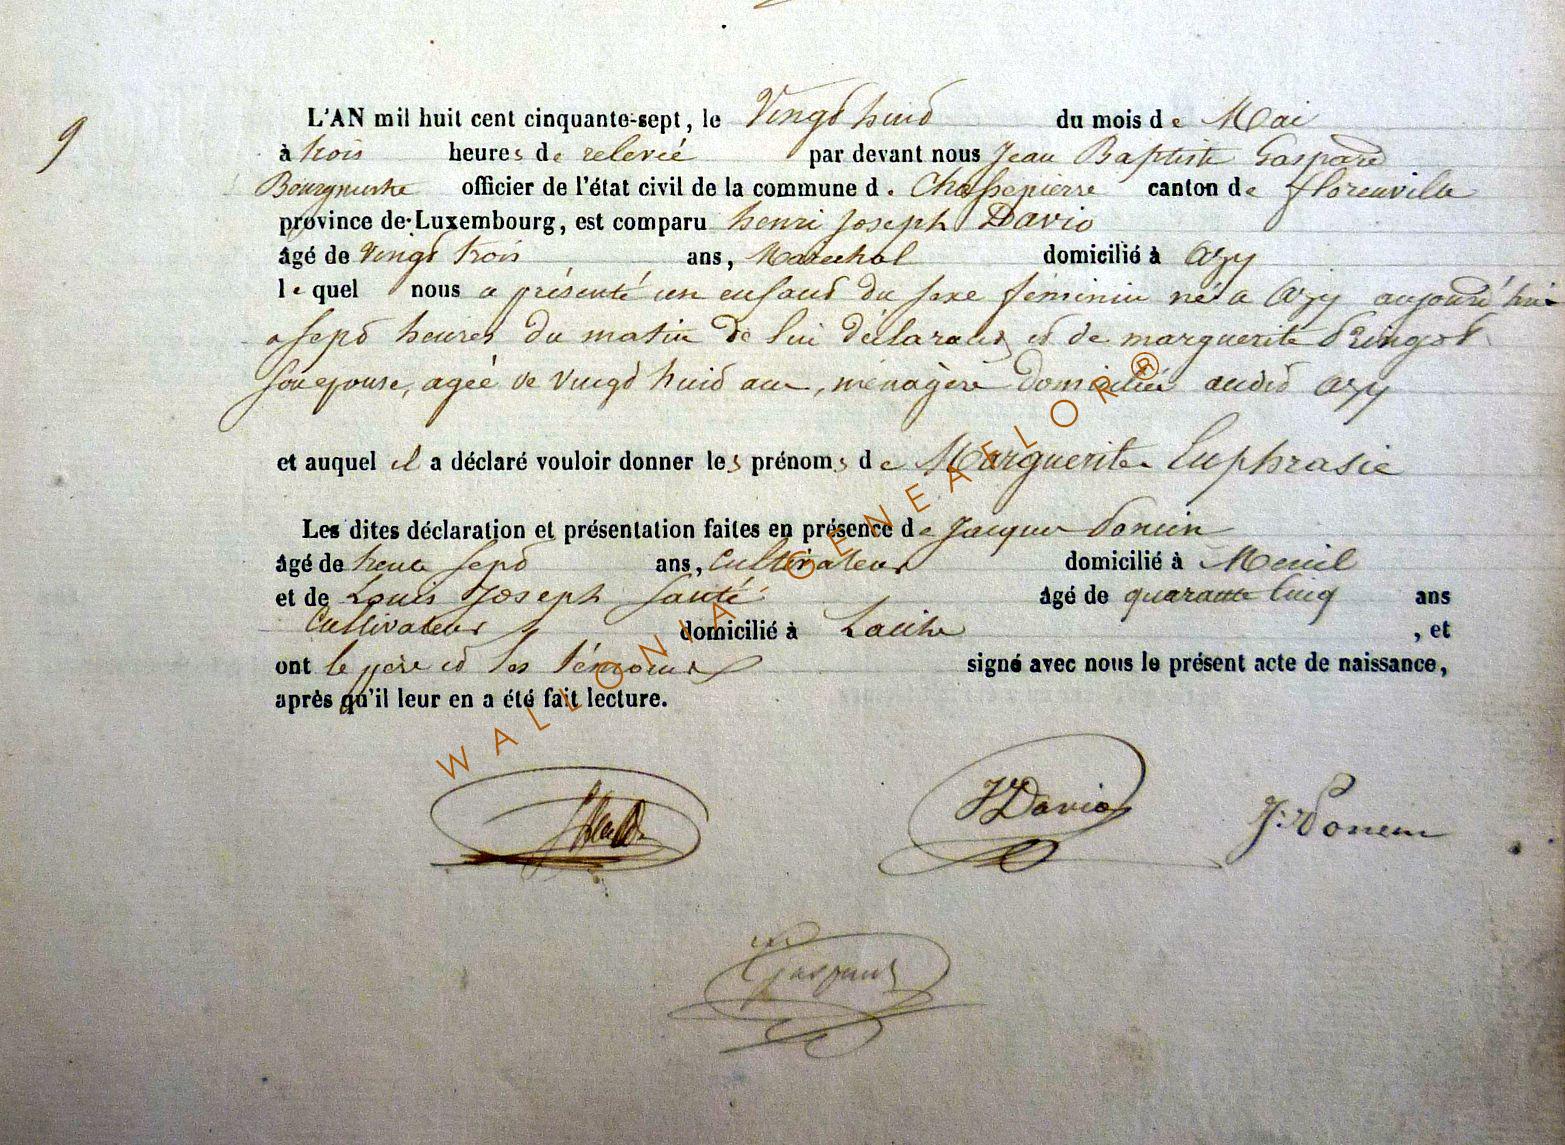 9
L'AN mil huit cent cinquante-sept, le Vingt huit du mois de Mai
à trois heures de relevée par devant nous Jean Baptiste Gaspard
Bourgmestre officier de l'état civil de la commune de Chassepierre canton de florenville
province de Luxembourg, est comparu henri Joseph Davio
âgé de Vingt trois ans, Marechal domicilié à Azy
le quel nous a présenté un enfant du sexe féminin né à Azy aujourd'hui
a sept heures du matin de lui déclarant et de marguerite
son epouse, agée de vingt huit ans, ménagère domiciliée audit Azy
et auquel il a déclaré vouloir donner les prénoms de Marguerite Euphrasie
Les dites déclaration et présentation faites en présence de Jacques Poncin
âgé de trente sept ans, Cultivateur domicilié à Menil
et de Louis Joseph âgé de quarante Cinq ans
Cultivateur domicilié à Laiche, et
ont le père et les témoins signé avec nous le présent acte de naissance,
après qu'il leur en a été fait lecture.
HDavio J. Poncin
Gaspard
WALLONIA GENEAFLOR®